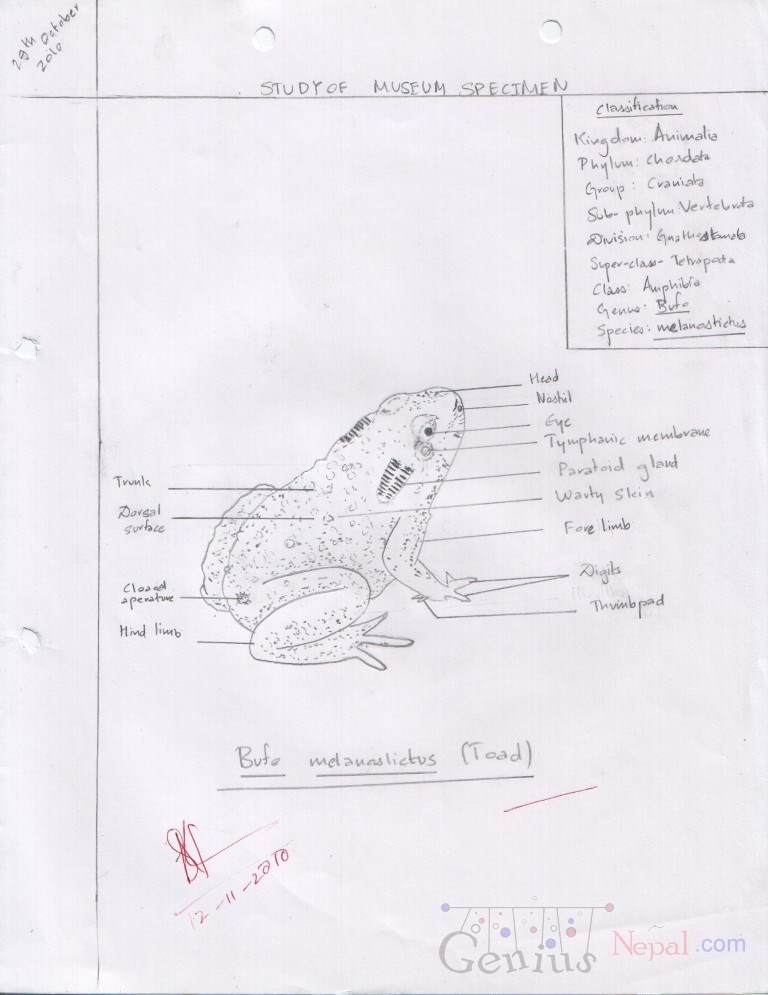 29th October
2010
STUDY OF MUSEUM SPECIMEN
Classification
Kingdom: Animalia
Phylum: Chordata
Group: Craniata
Sub-phylum: Vertebrata
Division: Gnathostomata
Super-class- Tetrapoda
Class: Amphibia
Genus: Bufo
Species: melanostictus
Head
Nostril
Eye
Tymphanic membrane
Paratoid gland
Warty skin
Fore limb
Digits
Thumbpad
Trunk
Dorsal
surface
Cloacal
aperature
Hind limb
Bufo melanostictus (Toad)
12-11-2010
Genius Nepal.com